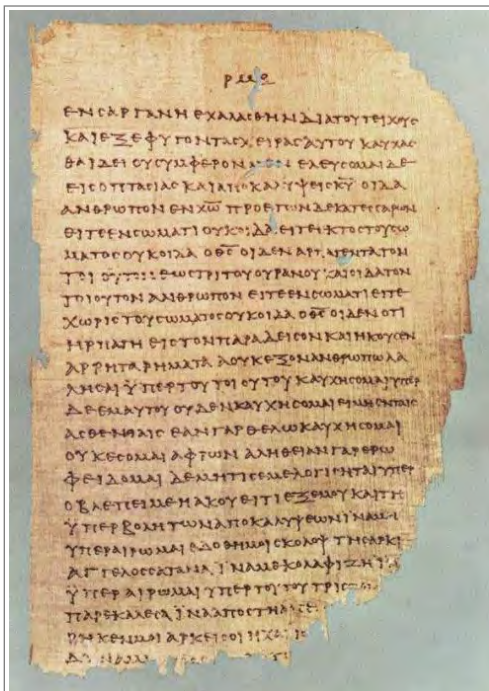 ΡΜΘ
ΕΝΣΑΡΓΑΝΗΕΧΑΛΑΣΘΗΝΔΙΑΤΟΥΤΕΙΧΟΥΣ
ΚΑΙΕΞΕΦΥΓΟΝΤΑΣΧΕΙΡΑΣΑΥΤΟΥΚΑΥΧΑΣ
ΘΑΙΔΕΙΟΥΣΥΜΦΕΡΟΝΜΕΝΕΛΕΥΣΟΜΑΙΔΕ
ΕΙΣΟΠΤΑΣΙΑΣΚΑΙΑΠΟΚΑΛΥΨΕΙΣΚ̅Υ̅ΟΙΔΑ
ΑΝΘΡΩΠΟΝΕΝΧ̅Ω̅ΠΡΟΕΤΩΝΔΕΚΑΤΕΣΣΑΡΩΝ
ΕΙΤΕΕΝΣΩΜΑΤΙΟΥΚΟΙΔΑΕΙΤΕΕΚΤΟΣΤΟΥΣΩ
ΜΑΤΟΣΟΥΚΟΙΔΑΟΘ̅Σ̅ΟΙΔΕΝΑΡΠΑΓΕΝΤΑΤΟΝ
ΤΟΙΟΥΤΟΝΕΩΣΤΡΙΤΟΥΟΥΡΑΝΟΥΚΑΙΟΙΔΑΤΟΝ
ΤΟΙΟΥΤΟΝΑΝΘΡΩΠΟΝΕΙΤΕΕΝΣΩΜΑΤΙΕΙΤΕ
ΧΩΡΙΣΤΟΥΣΩΜΑΤΟΣΟΥΚΟΙΔΑΟΘ̅Σ̅ΟΙΔΕΝΟΤΙ
ΗΡΠΑΓΗΕΙΣΤΟΝΠΑΡΑΔΕΙΣΟΝΚΑΙΗΚΟΥΣΕΝ
ΑΡΡΗΤΑΡΗΜΑΤΑΑΟΥΚΕΞΟΝΑΝΘΡΩΠΩΛΑ
ΛΗΣΑΙΥΠΕΡΤΟΥΤΟΙΟΥΤΟΥΚΑΥΧΗΣΟΜΑΙΥΠΕΡ
ΔΕΕΜΑΥΤΟΥΟΥΔΕΝΚΑΥΧΗΣΟΜΑΙΕΙΜΗΕΝΤΑΙΣ
ΑΣΘΕΝΙΑΙΣΕΑΝΓΑΡΘΕΛΩΚΑΥΧΗΣΟΜΑΙ
ΟΥΚΕΣΟΜΑΙΑΦΡΩΝΑΛΗΘΕΙΑΝΓΑΡΕΡΩ
ΦΕΙΔΟΜΑΙΔΕΜΗΤΙΣΕΜΕΛΟΓΙΣΗΤΑΙΥΠΕΡ
ΟΒΛΕΠΕΙΜΕΗΑΚΟΥΕΙΤΙΕΞΕΜΟΥΚΑΙΤΗ
ΥΠΕΡΒΟΛΗΤΩΝΑΠΟΚΑΛΥΨΕΩΝΙΝΑΜΗ
ΥΠΕΡΑΙΡΩΜΑΙΕΔΟΘΗΜΟΙΣΚΟΛΟΨΤΗΣΑΡΚΙ
ΑΓΓΕΛΟΣΣΑΤΑΝΑΙΝΑΜΕΚΟΛΑΦΙΖΗΙΝΑ
ΥΠΕΡΑΙΡΩΜΑΙΥΠΕΡΤΟΥΤΟΥΤΡΙΣ
ΠΑΡΕΚΑΛΕΣΑΙΝΑΑΠΟΣΤΗΑ
ΡΗΚΕΝΜΟΙΑΡΚΕΙΣΟΙΗΧΑΡΙΣ